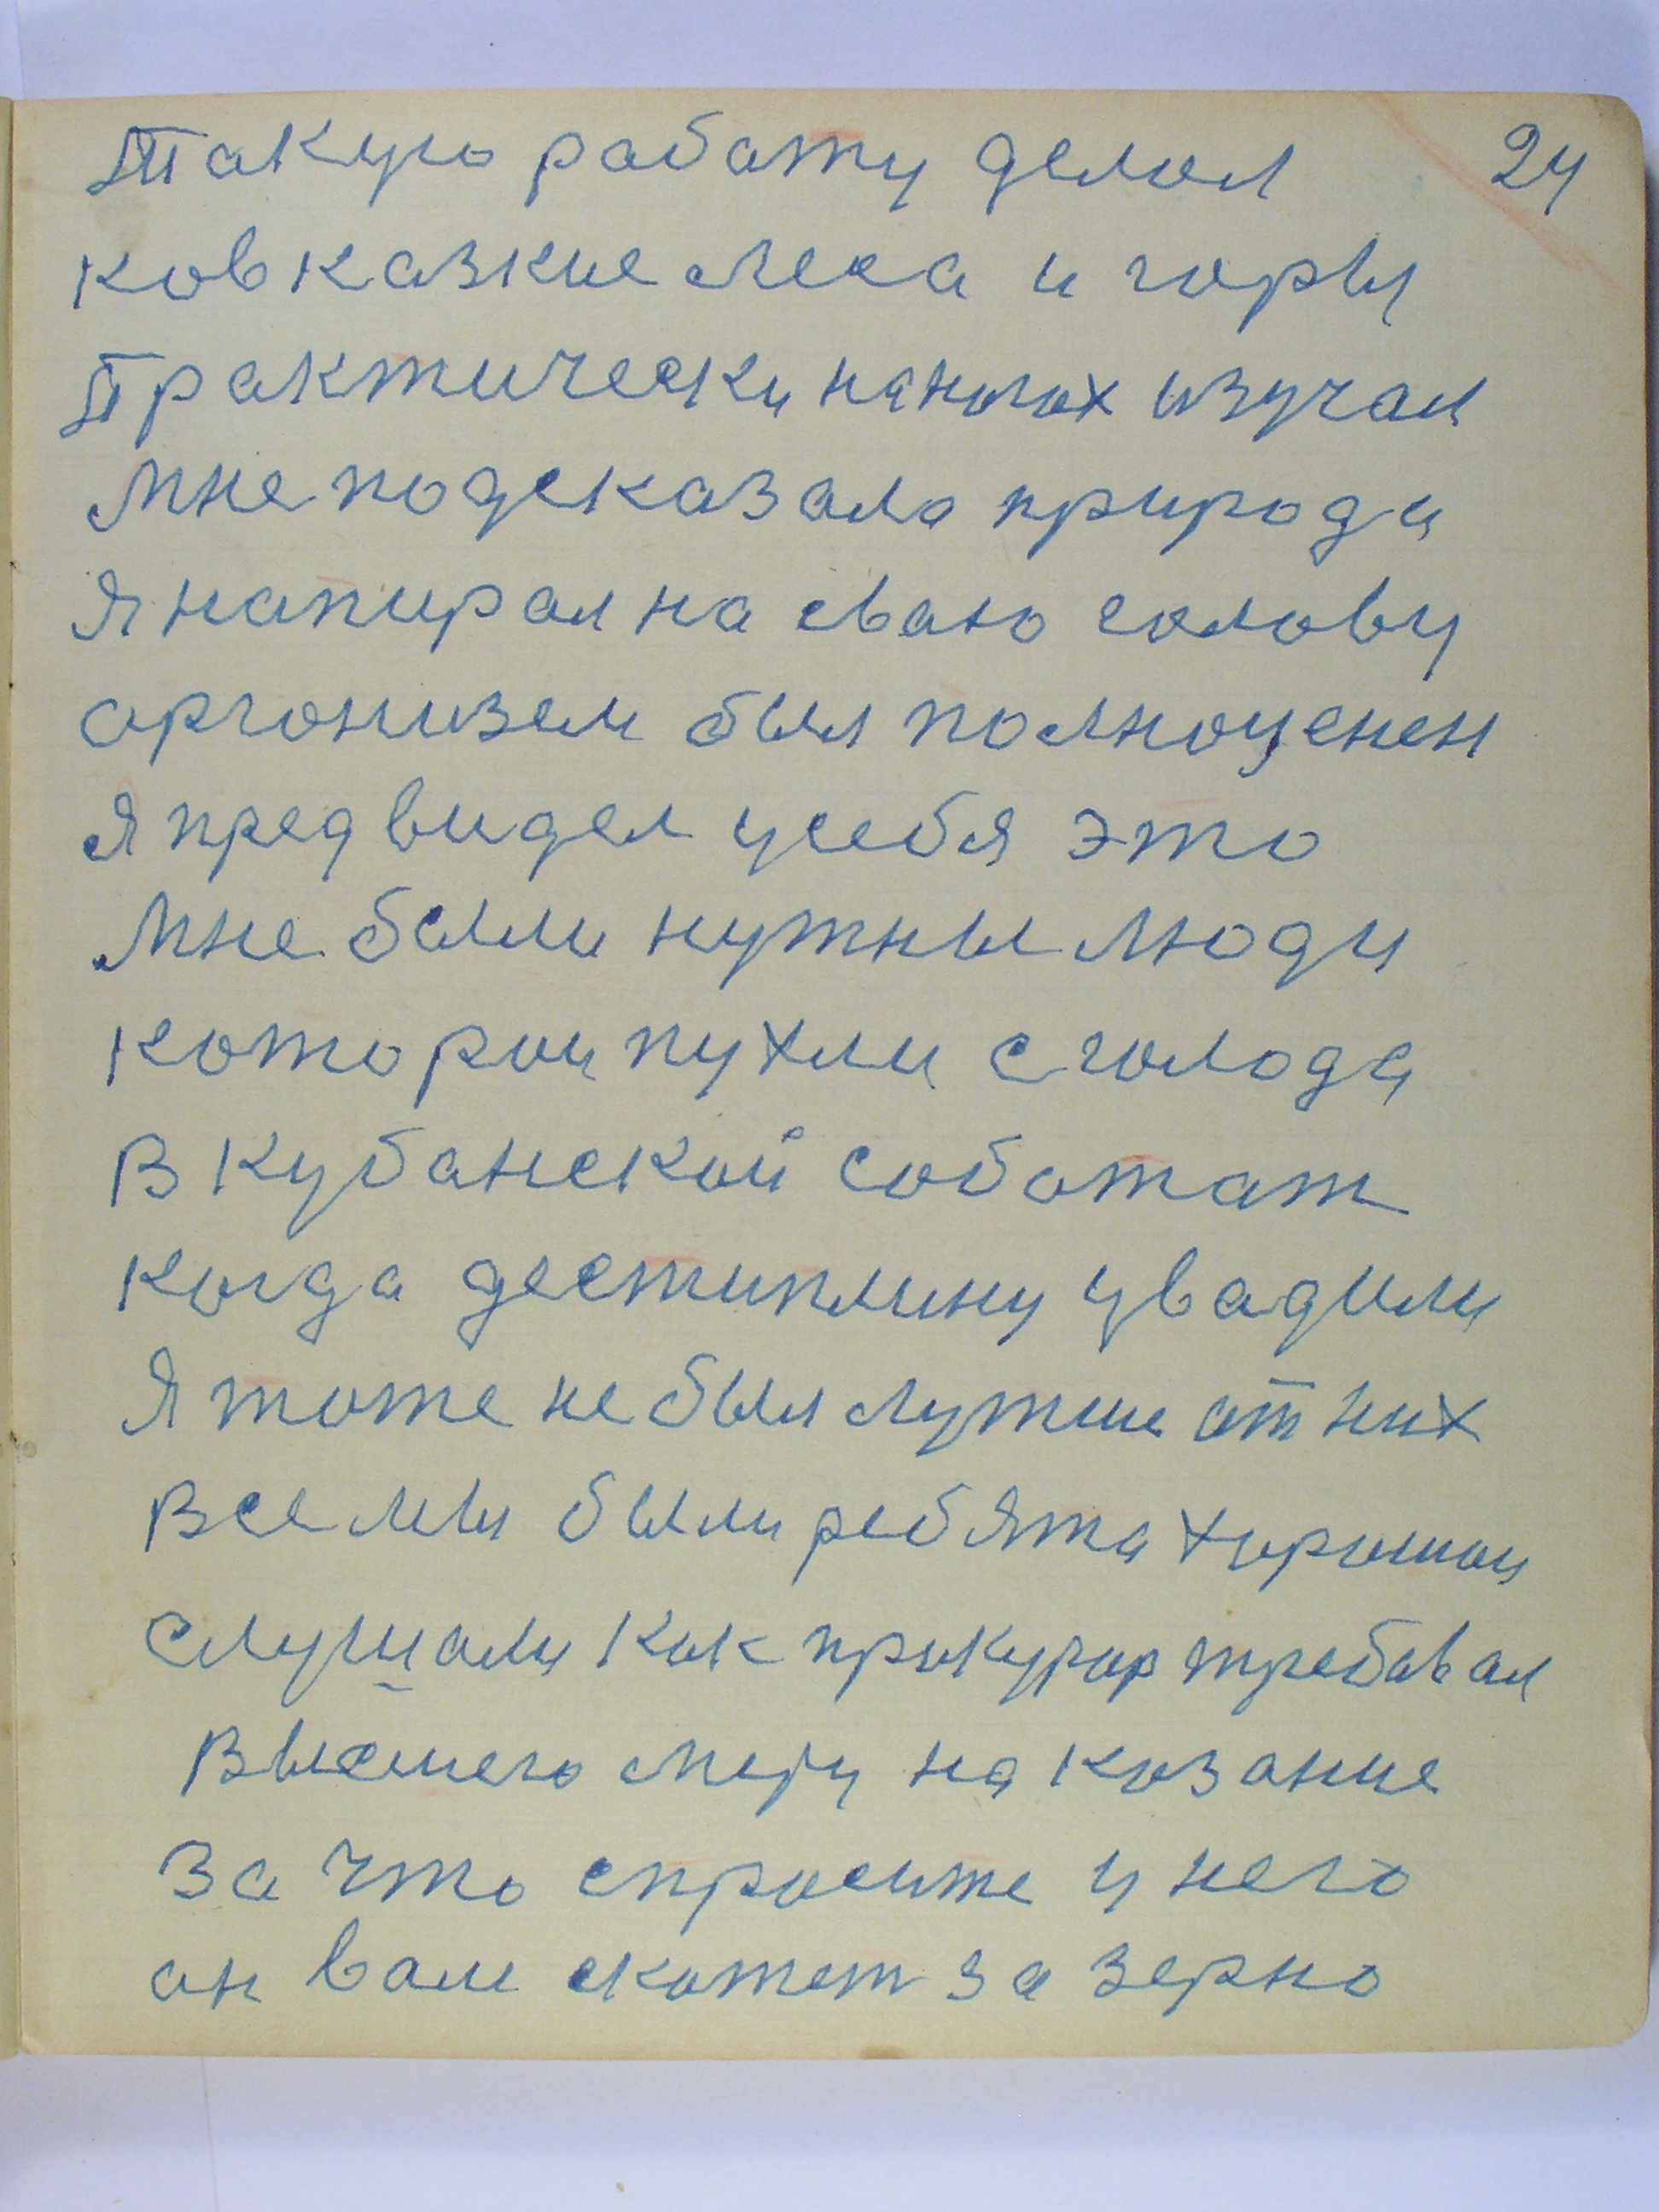 Такую работу делал 24
ковказкие леса и горы
Практически наногах изучал
Мне подсказала природа
Я напирал на сваю голову
аргонизем был полноценен
Я предвидел усебя это
Мне были нужны люди
которои пухли с голода
В Кубанской соботаж
когда дестиплину увадили
Я тоже не был лутше от них
Все мы были ребята хорошои
Слушали как прокурор требавал
Высшего меру на козание
За что спросите у него
он вам скажет за зерно